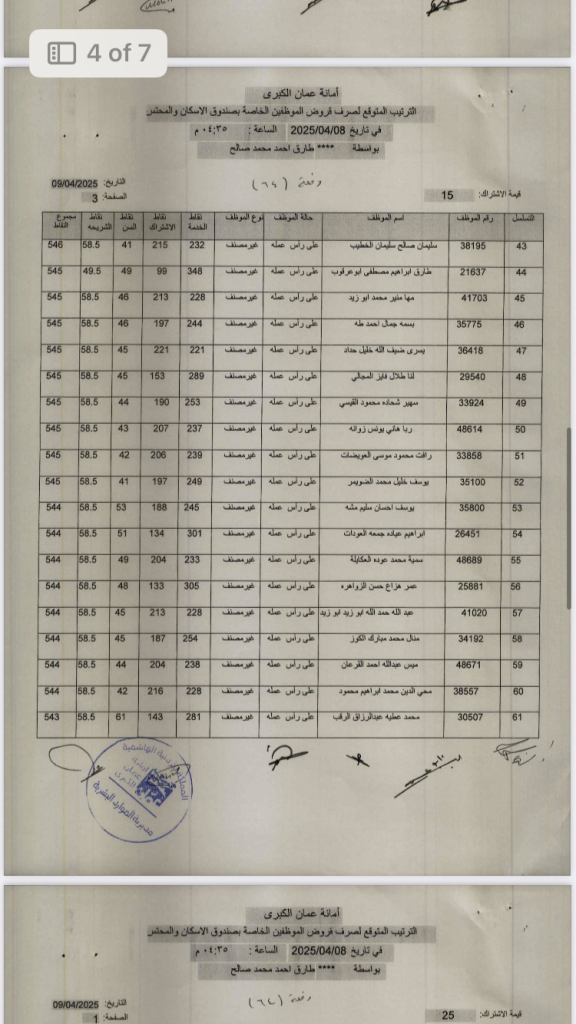 4 of 7
أمانة عمان الكبرى
الترتيب المتوقع لصرف قروض الموظفين الخاصة بصندوق الاسكان والمحتس
في تاريخ 2025/04/08 الساعة : ٠٤:٣٥ م
بواسطة **** طارق احمد محمد صالح
دفعة (٦٤)
التاريخ: 09/04/2025
قيمة الاشتراك: 15
الصفحة: 3
التسلسل رقم الموظف اسم الموظف حالة الموظف نوع الموظف نقاط الخدمة نقاط الاشتراك نقاط السن نقاط الشريحه مجموع النقاط
43 38195 سليمان صالح سليمان الخطيب على رأس عمله غيرمصنف 232 215 41 58.5 546
44 21637 طارق ابراهيم مصطفى ابوعرقوب على رأس عمله غيرمصنف 348 99 49 49.5 545
45 41703 مها منير محمد ابو زيد على رأس عمله غيرمصنف 228 213 46 58.5 545
46 35775 بسمه جمال احمد طه على رأس عمله غيرمصنف 244 197 46 58.5 545
47 36418 يسرى ضيف الله خليل حداد على رأس عمله غيرمصنف 221 221 45 58.5 545
48 29540 لنا طلال فايز المجالي على رأس عمله غيرمصنف 289 153 45 58.5 545
49 33924 سهير شحاده محمود القيسي على رأس عمله غيرمصنف 253 190 44 58.5 545
50 48614 ربا هاني يونس زوانه على رأس عمله غيرمصنف 237 207 43 58.5 545
51 33858 رافت محمود موسى العويضات على رأس عمله غيرمصنف 239 206 42 58.5 545
52 35100 يوسف خليل محمد الضويمر على رأس عمله غيرمصنف 249 197 41 58.5 545
53 35800 يوسف احسان سليم مشه على رأس عمله غيرمصنف 245 188 53 58.5 544
54 26451 ابراهيم عياده جمعه العودات على رأس عمله غيرمصنف 301 134 51 58.5 544
55 48689 سمية محمد عوده العكايلة على رأس عمله غيرمصنف 233 204 49 58.5 544
56 25881 عمر هزاع حسن الزواهره على رأس عمله غيرمصنف 305 133 48 58.5 544
57 41020 عبد الله حمد الله ابو زيد ابو زيد على رأس عمله غيرمصنف 228 213 45 58.5 544
58 34192 منال محمد مبارك الكوز على رأس عمله غيرمصنف 254 187 45 58.5 544
59 48671 ميس عبدالله احمد القرعان على رأس عمله غيرمصنف 238 204 44 58.5 544
60 38557 محي الدين محمد ابراهيم محمود على رأس عمله غيرمصنف 228 216 42 58.5 544
61 30507 محمد عطيه عبدالرزاق الرقب على رأس عمله غيرمصنف 281 143 61 58.5 543
مديرية الموارد البشرية
أمانة عمان الكبرى
الترتيب المتوقع لصرف قروض الموظفين الخاصة بصندوق الاسكان والمحتس
في تاريخ 2025/04/08 الساعة : ٠٤:٣٥ م
بواسطة **** طارق احمد محمد صالح
دفعة (٦٤)
التاريخ: 09/04/2025
قيمة الاشتراك: 25
الصفحة: 1